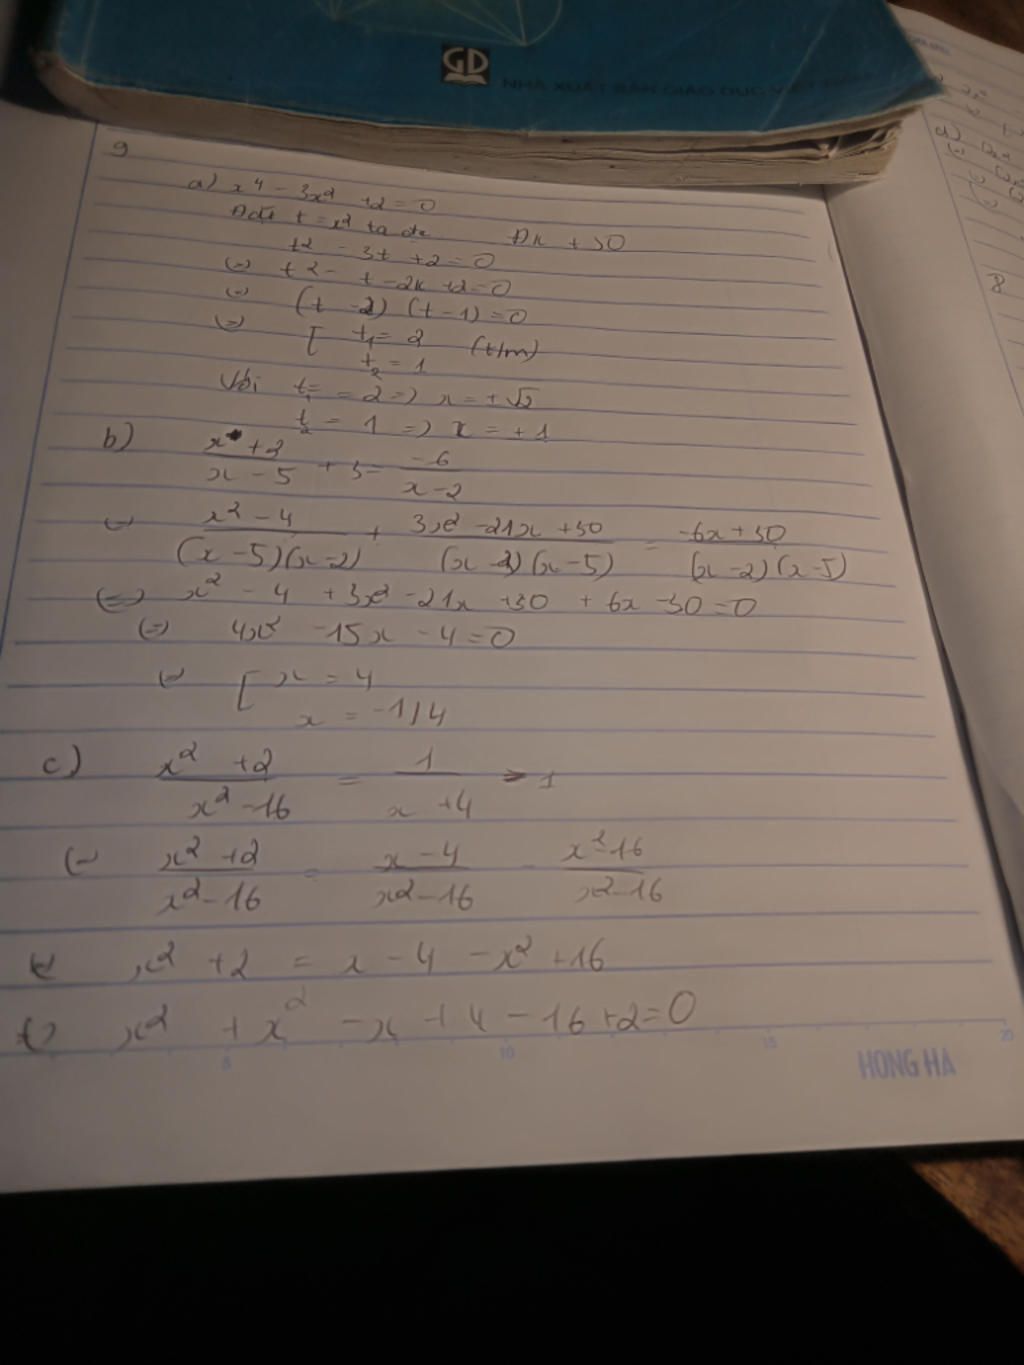 GD
NHÀ XUẤT BẢN GIÁO DỤC VIỆT NAM
9
a) x⁴ - 3x² + 2 = 0
Đặt t = x² ta đc ĐK t ≥ 0
t² - 3t + 2 = 0
(=) t² - t - 2t + 2 = 0
(=) (t - 2) (t - 1) = 0
(=) [ t₁ = 2 (t/m)
t₂ = 1
Với t₁ = 2 => x = ±√2
t₂ = 1 => x = ±1
b) (x + 2)/(x - 5) + 3 = (-6)/(x - 2)
(=) (x² - 4)/((x - 5)(x - 2)) + (3x² - 21x + 30)/((x - 2)(x - 5)) = (-6x + 30)/((x - 2)(x - 5))
(=) x² - 4 + 3x² - 21x + 30 + 6x - 30 = 0
(=) 4x² - 15x - 4 = 0
(=) [ x = 4
x = -1/4
c) (x² + 2)/(x² - 16) = 1/(x + 4) - 1
(=) (x² + 2)/(x² - 16) = (x - 4)/(x² - 16) - (x² - 16)/(x² - 16)
(=) x² + 2 = x - 4 - x² + 16
(=) x² + x² - x + 4 - 16 + 2 = 0
5 10 15 20
HONG HA